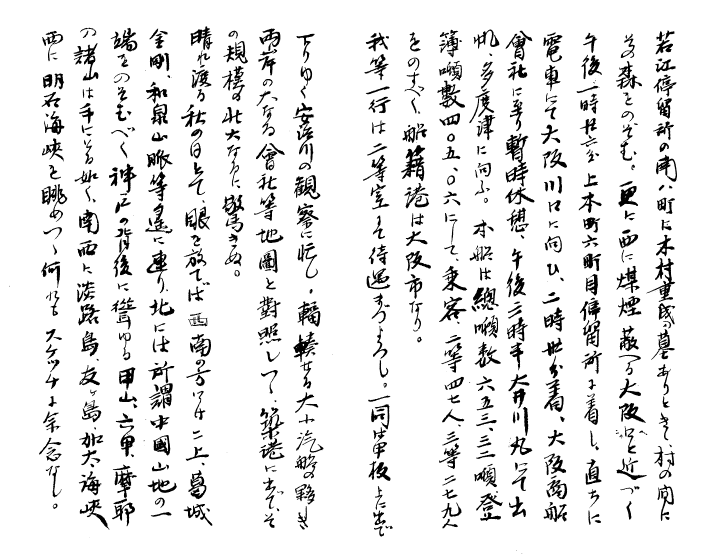 若江停留所の南八町に木村重成の墓ありときく、村の間に
ある森をのぞむ。更に西に煤煙蔽へる大阪に近づく
午後一時廿六分上本町六町目停留所に着し、直ちに
電車にて大阪川口に向ひ、二時廿分着、大阪商船
會社に至り暫時休憩、午後三時半大井川丸にて出
帆、多度津に向ふ。本船は總噸数六五三、三二噸登
簿噸數四〇五、〇六にして、乗客、二等四七人、三等二七九人
をのすべく、船籍港は大阪市なり。
我等一行は二等室にて待遇よろし。一同甲板上に出で
下りゆく安治川の観察に忙し。輻輳せる大小汽船の夥しき
両岸の大なる會社等地圖と對照しつゝ、築港に出でゝそ
の規模の壮大なるに驚きぬ。
晴れ渡る秋の日とて、眼を放てば西南の方には二上、葛城
金剛、和泉山脈等遙に連り、北には所謂中國山地の一
端をのぞむべく神戸の背後に聳ゆる甲山、六甲、摩耶
の諸山は手にとる如く、南西に淡路島、友ヶ島、加太海峡
西に明石海峡を眺めつゝ何れもスケッチに余念なし。